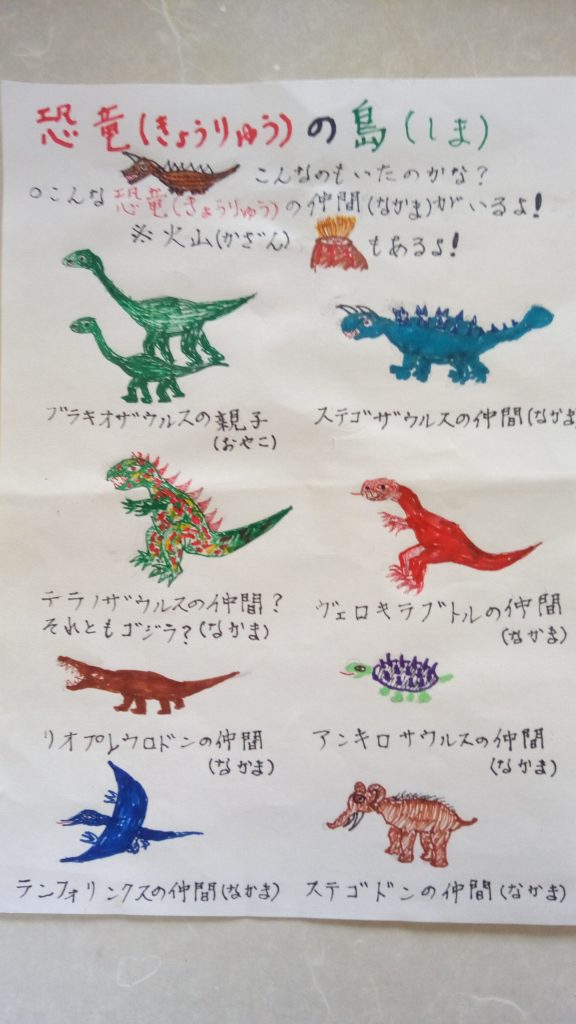 恐竜(きょうりゅう)の島(しま)
こんなのもいたのかな?
○こんな恐竜(きょうりゅう)の仲間(なかま)がいるよ!
※火山(かざん)もあるよ!
ブラキオザウルスの親子(おやこ)
ステゴザウルスの仲間(なかま
テラノザウルスの仲間?
それともゴジラ?(なかま)
ヴェロキラブトルの仲間(なかま)
リオプレウロドンの仲間(なかま)
アンキロサウルスの仲間(なかま)
ランフォリンクスの仲間(なかま)
ステゴドンの仲間(なかま)